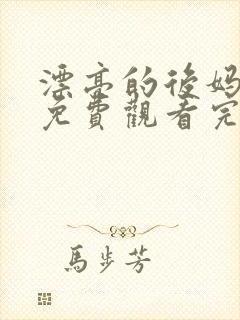 漂亮的後媽
免費觀看完
馬步芳